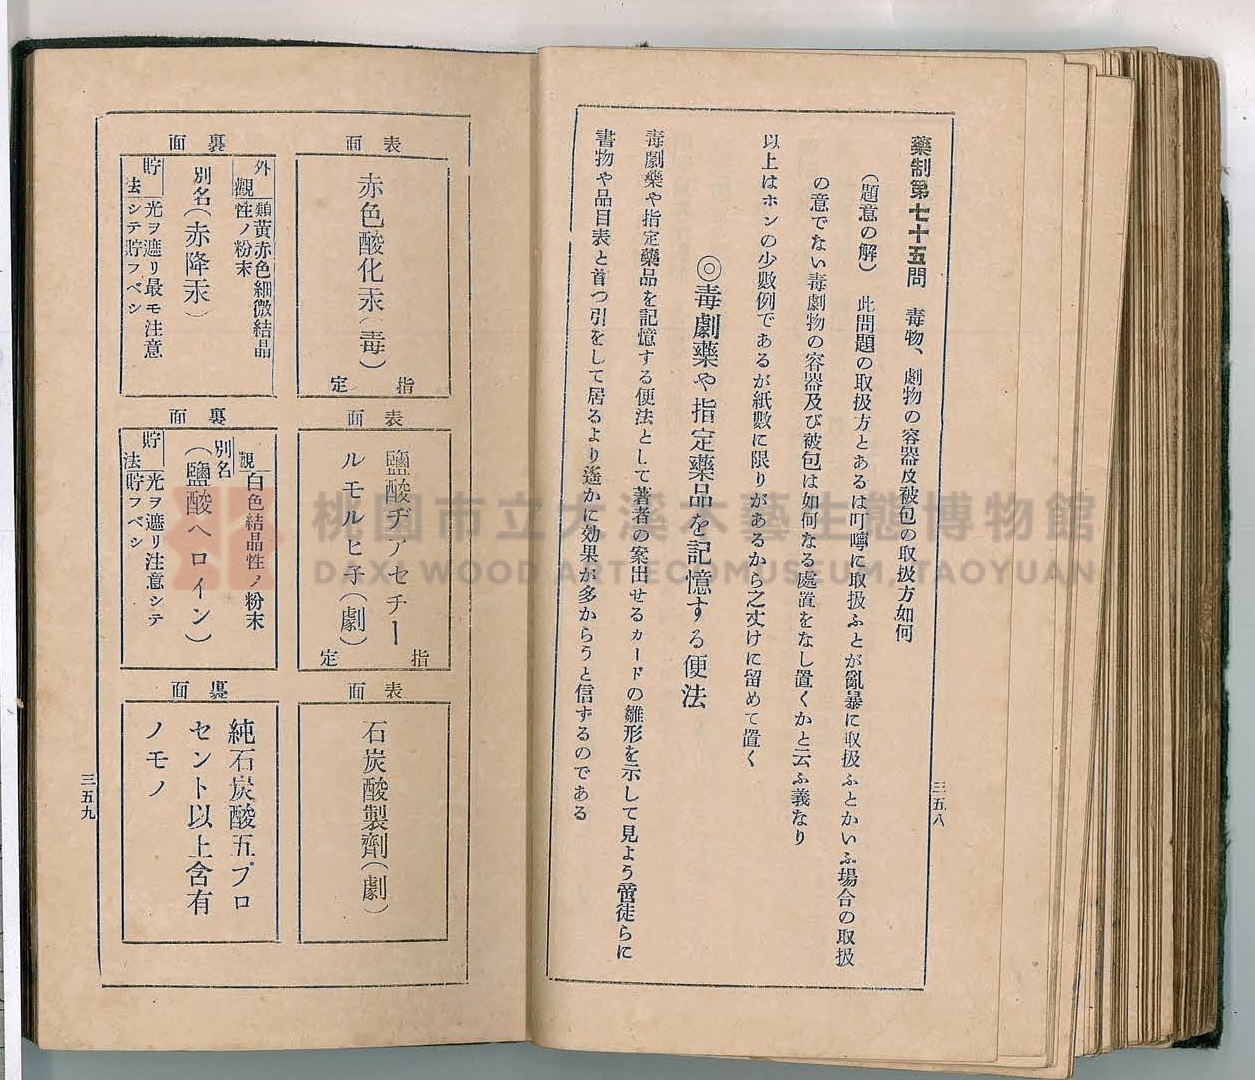 藥制第七十五問　毒物、劇物の容器及被包の取扱方如何
（題意の解）　此問題の取扱方とあるは叮嚀に取扱ふとが亂暴に取扱ふとかいふ場合の取扱
の意でない毒劇物の容器及び被包は如何なる處置をなし置くかと云ふ義なり
以上はホンの少數例であるが紙數に限りがあるから之丈けに留めて置く
◎毒劇藥や指定藥品を記憶する便法
毒劇藥や指定藥品を記憶する便法として著者の案出せるカードの雛形を示して見よう啻徒らに
書物や品目表と首つ引をして居るより遙かに効果が多からうと信ずるのである
三五八
表面
赤色酸化汞（毒）
指定
裏面
外觀
類黃赤色細微結晶
性ノ粉末
別名（赤降汞）
貯法
光ヲ遮リ最モ注意
シテ貯フベシ
表面
鹽酸ヂアセチー
ルモルヒ子（劇）
指定
裏面
觀
白色結晶性ノ粉末
別名
（鹽酸ヘロイン）
貯法
光ヲ遮リ注意シテ
貯フベシ
表面
石炭酸製劑（劇）
裏面
純石炭酸五プロ
セント以上含有
ノモノ
三五九
桃園市立大溪木藝生態博物館
DAXI WOOD ART ECOMUSEUM, TAOYUAN